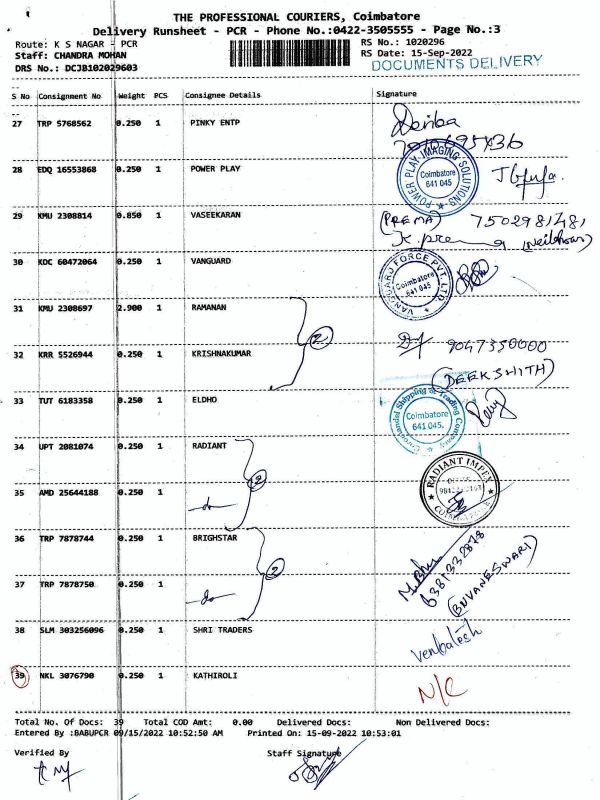 THE PROFESSIONAL COURIERS, Coimbatore
Delivery Runsheet - PCR - Phone No.:0422-3505555 - Page No.:3
Route: K S NAGAR - PCR
Staff: CHANDRA MOHAN
DRS No.: DCJB102029603
RS No.: 1020296
RS Date: 15-Sep-2022
DOCUMENTS DELIVERY
S No Consignment No Weight PCS Consignee Details Signature
27 TRP 5768562 0.250 1 PINKY ENTP
28 EDQ 16553868 0.250 1 POWER PLAY
POWER PLAY IMAGING SOLUTIONS
Coimbatore
641 045
29 KMU 2308814 0.850 1 VASEEKARAN (PREMA) 7502981481
30 KDC 60472064 0.250 1 VANGUARD
VANGUARD FORCE PVT. LTD.
Coimbatore
641 045
31 KMU 2308697 2.900 1 RAMANAN
2
32 KRR 5526944 0.250 1 KRISHNAKUMAR 9047350000
(DEEKSHITH)
33 TUT 6183358 0.250 1 ELDHO
Coromandel Shipping & Trading Company
Coimbatore
641 045.
34 UPT 2081074 0.250 1 RADIANT
2
RADIANT IMPEX
35 AMD 25644188 0.250 1 do
36 TRP 7878744 0.250 1 BRIGHSTAR
2
6381332878
(BUVANESWARI)
37 TRP 7878750 0.250 1 do
38 SLM 303256096 0.250 1 SHRI TRADERS Venkatesh
39 NKL 3076790 0.250 1 KATHIROLI N/C
Total No. Of Docs: 39 Total COD Amt: 0.00 Delivered Docs: Non Delivered Docs:
Entered By :BABUPCR 09/15/2022 10:52:50 AM Printed On: 15-09-2022 10:53:01
Verified By Staff Signature